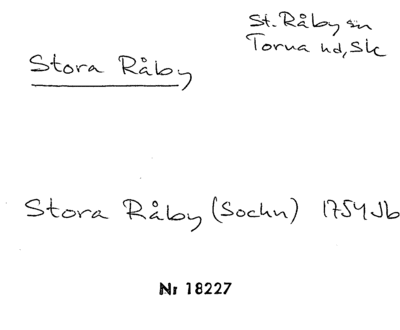 St. Råby sn
Torna hd, Sk
Stora Råby
Stora Råby (Sochn) 1754 Jb
Nr 18227